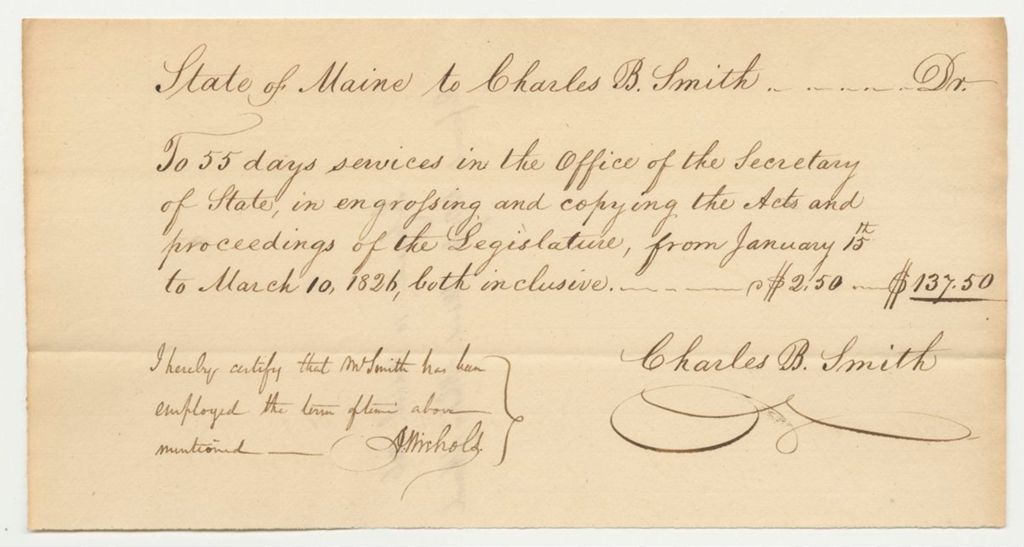 State of Maine to Charles B. Smith Dr.
To 55 days services in the Office of the Secretary
of State, in engrossing and copying the Acts and
proceedings of the Legislature, from January 15th
to March 10, 1826, both inclusive. $2.50 $137.50
Charles B. Smith
I hereby certify that Mr Smith has been
employed the term of time above
mentioned — A. Nichols.